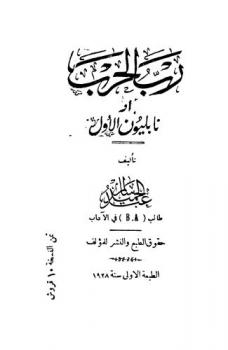 رب الحرب
او
نابليون الأول
تأليف
عبد الجبار
طالب ( B.A ) في الآداب
حقوق الطبع والنشر للمؤلف
الطبعة الاولى سنة ١٩٢٨
ثمن النسخة ١٠ قروش